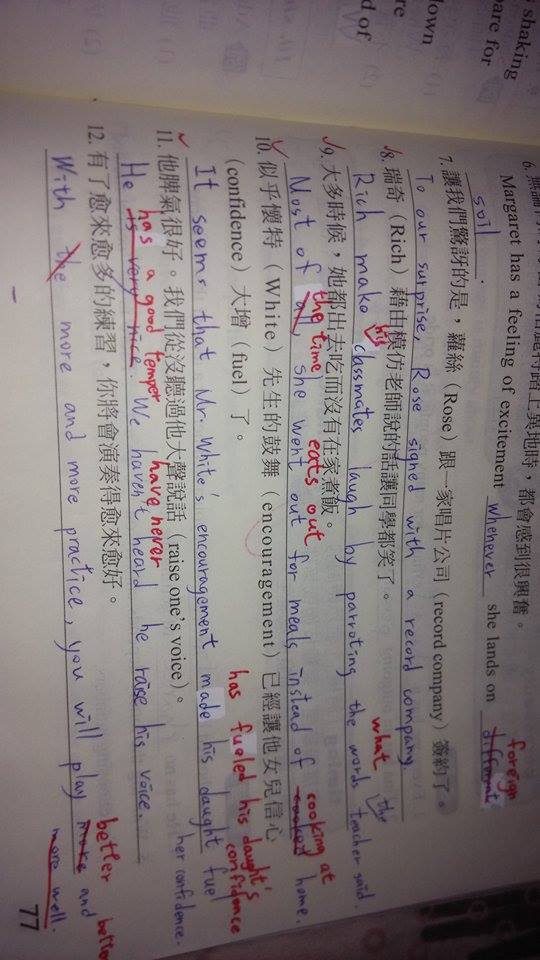 shaking
are for
down
re
d of
Margaret has a feeling of excitement whenever she lands on different foreign
soil.
7. 讓我們驚訝的是，蘿絲（Rose）跟一家唱片公司（record company）簽約了。
To our surprise, Rose signed with a record company.
8. 瑞奇（Rich）藉由模仿老師說的話讓同學都笑了。
Rich make his classmates laugh by parroting the words what the teacher said.
9. 大多時候，她都出去吃而沒有在家煮飯。
Most of all, the time she went out for meals eats out instead of cooked cooking at home.
10. 似乎懷特（White）先生的鼓舞（encouragement）已經讓他女兒信心
（confidence）大增（fuel）了。
It seems that Mr. White's encouragement made his daught fuel
her confidence.
has fueled his daught's
confidence
11. 他脾氣很好。我們從沒聽過他大聲說話（raise one's voice）。
He is very nice has a good temper We haven't have never heard he raise his voice.
12. 有了愈來愈多的練習，你將會演奏得愈來愈好。
With the more and more practice, you will play more and
better better
more well.
77